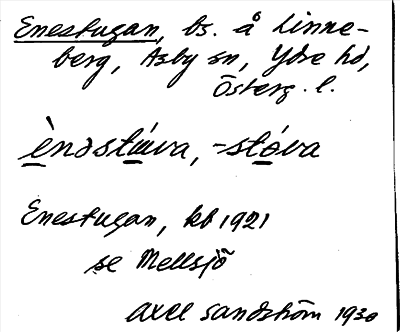 Enestugan, bs. å Linne-
berg, Asby sn, Ydre hd,
Österg. l.
ènəstɯva, -stóva
Enestugan, kb 1921
se Mellsjö
Axel Sandström 1930